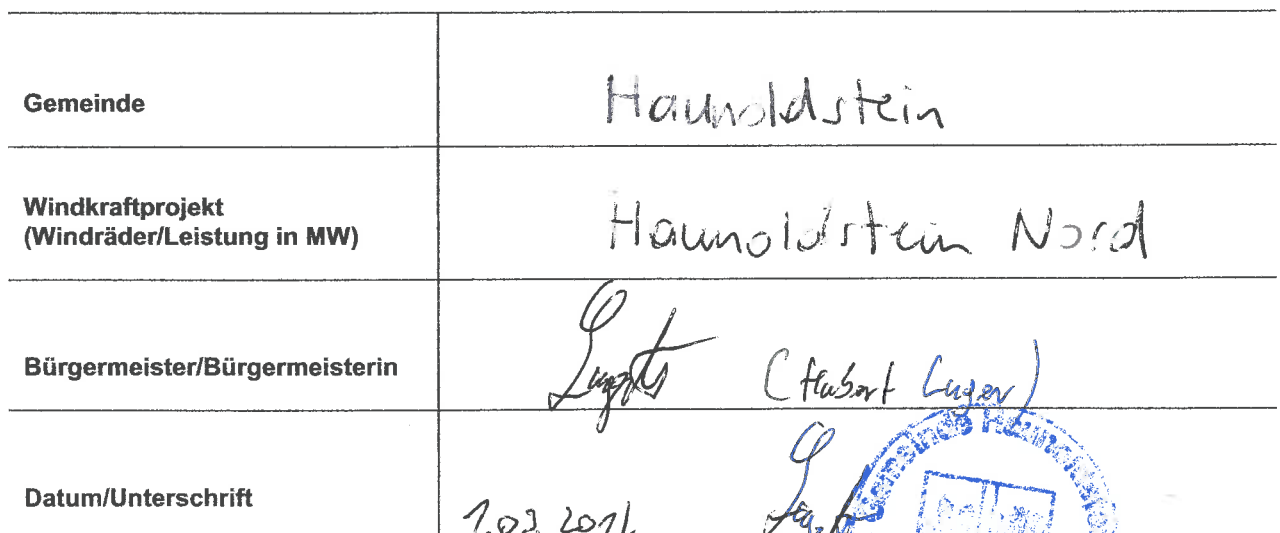 Gemeinde
Haunoldstein
Windkraftprojekt
(Windräder/Leistung in MW)
Haunoldstein Nord
Bürgermeister/Bürgermeisterin
(Hubert Luger)
Datum/Unterschrift
Gemeinde Haunoldstein